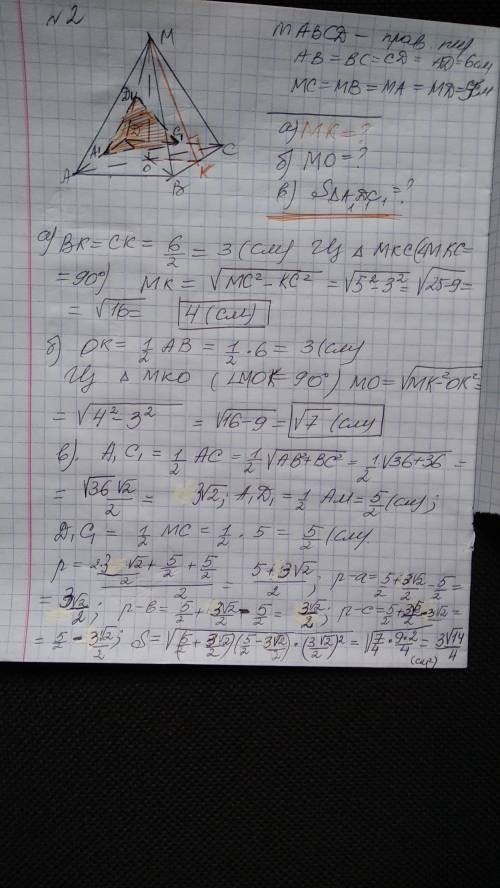 №2
MABCD – прав. пир
AB = BC = CD = AD = 6 см
MC = MB = MA = MD = 5 см
а) MK = ?
б) MO = ?
в) S△A₁D₁C₁ = ?
M
D₁
D
A₁
C₁
A
O
B
C
K
а) BK = CK = 6/2 = 3 (см) Из △ MKC (∠MKC =
= 90°) MK = √(MC² – KC²) = √(5² – 3²) = √(25 – 9) =
= √16 = 4 (см)
б) OK = 1/2 AB = 1/2 · 6 = 3 (см)
Из △ MKO (∠MOK = 90°) MO = √(MK² – OK²) =
= √(4² – 3²) = √(16 – 9) = √7 (см)
в). A₁C₁ = 1/2 AC = 1/2 √(AB² + BC²) = 1/2 √(36 + 36) =
= √36 √2 / 2 = 3√2; A₁D₁ = 1/2 AM = 5/2 (см);
D₁C₁ = 1/2 MC = 1/2 · 5 = 5/2 (см).
= (5 + 3√2)/2; p – a = 5/2 + 3√2/2 – 5/2 =
= 3√2/2; p – в = 5/2 + 3√2/2 – 5/2 = 3√2/2; p – c =
= 5/2 – 3√2/2; S = √((5/2 + 3√2/2)(5/2 – 3√2/2) · (3√2/2)²) = √(7/4 · 9·2/4) = 3√14/4
(см²)